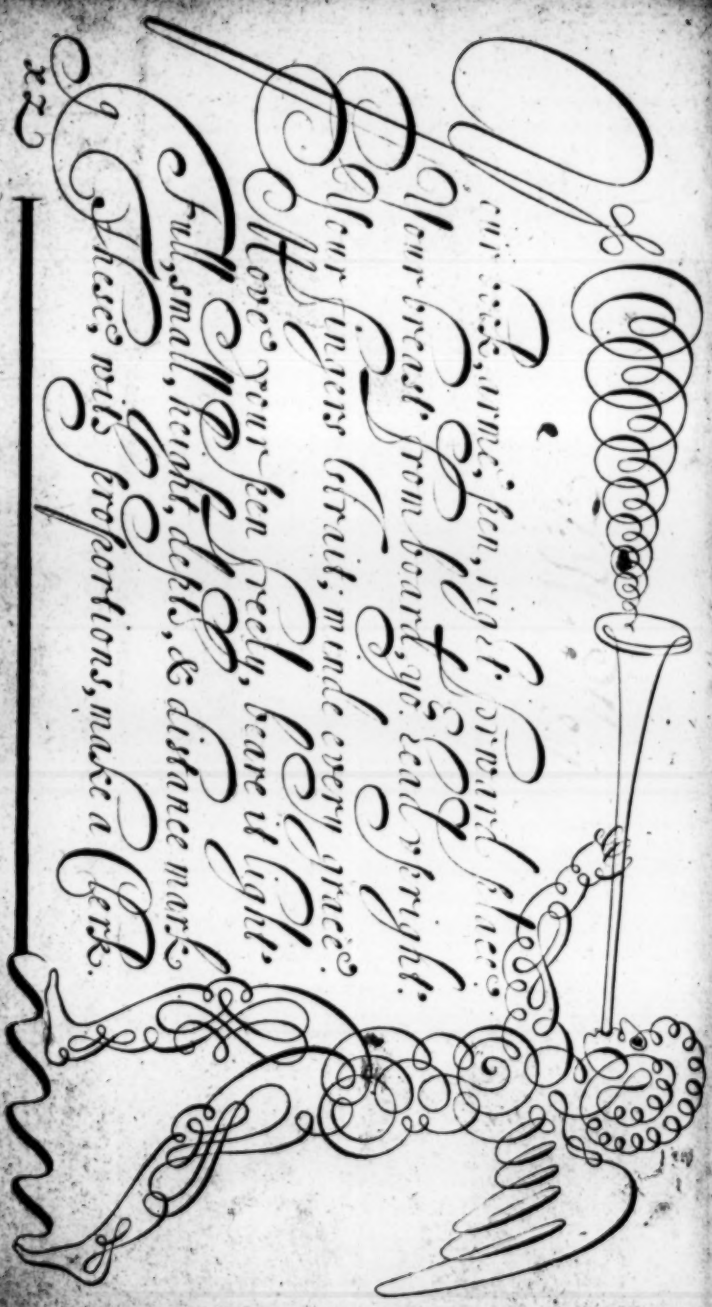 Your book, arme, pen, right forward place:
Your breast from board, yor. head upright:
Your fingers strait; minde every grace.
Move your pen freely, beare it light.
Full, small, height, depth, & distance mark
These, with proportions, make a Clerk.